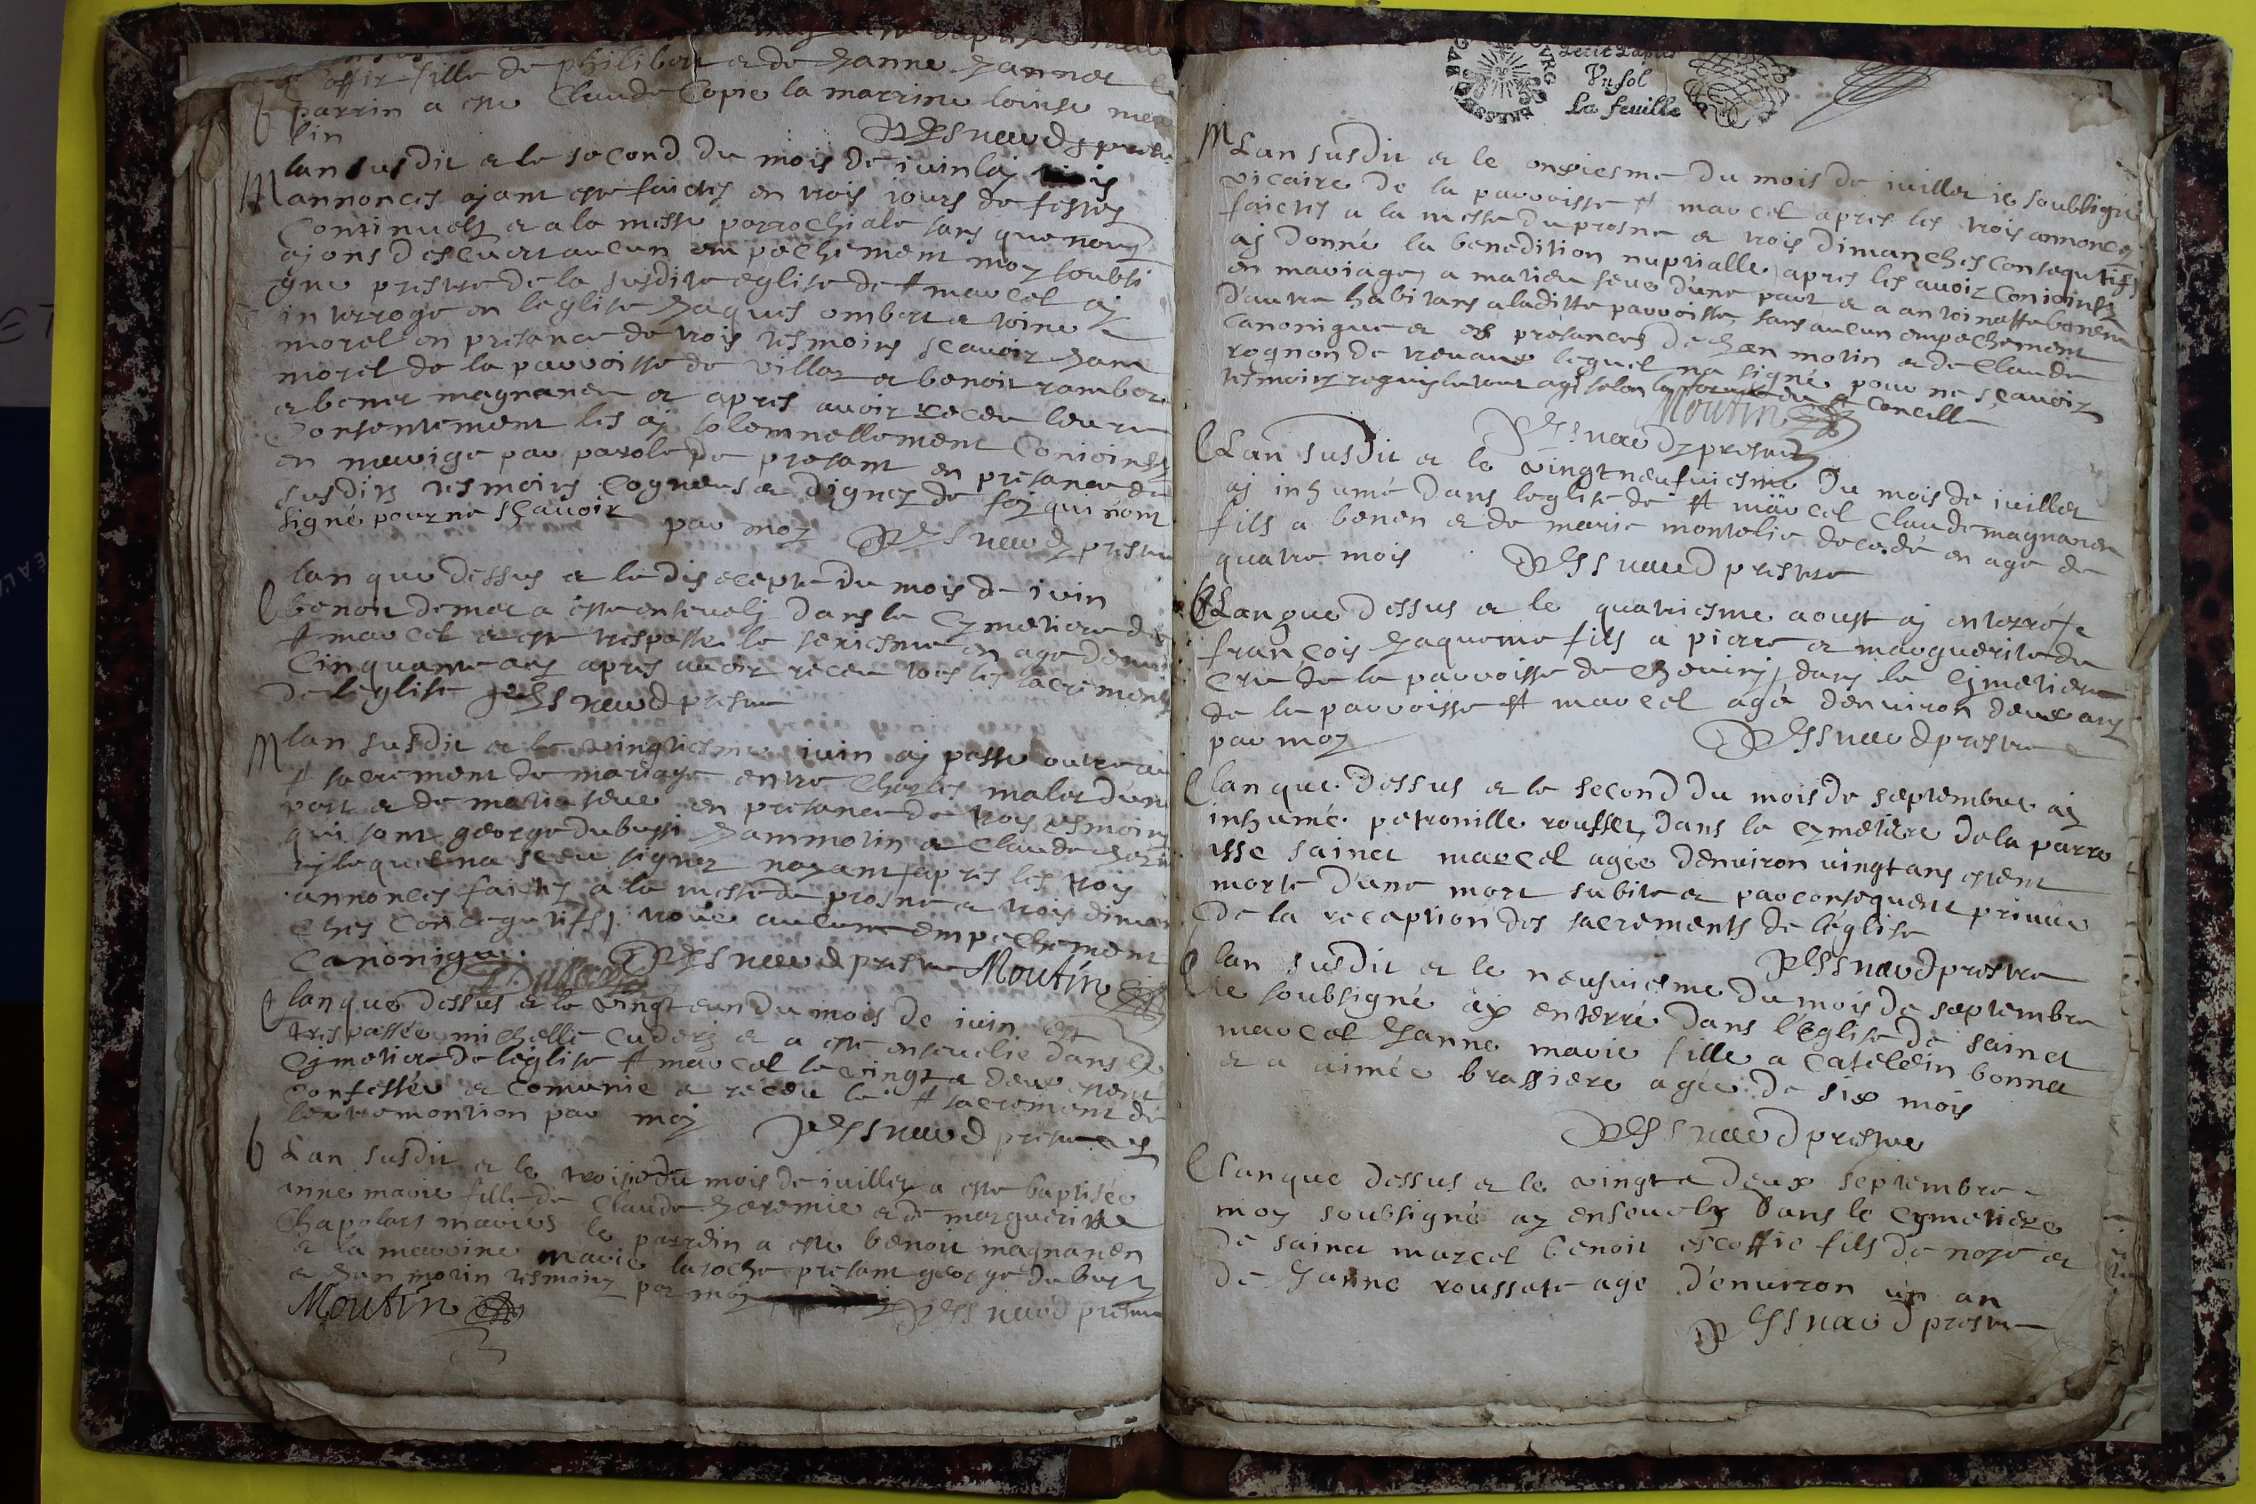 fille de philibert et de Janne Jannet
b parrin a este Claude Copie la marrine louise
lin
lan susdit et le second du mois de iuin
M annonces ajant este faictes en trois iours de festes
Continuels et a la messe parrochiale sans que nous
ajons descuert aucun empechement moy soubsi
gne prestre de la susdite eglise de st marcel aj
interroge en leglise Jaques ombert et toine
morel en presance de trois tesmoins scauoir Jane
morel de la parroisse de villar et benoit rambert
et benet magnanen et apres auoir receu leur
Consentement les aj solemnellement Conioinctz
en mariage par parole de presant en presance de
susditz tesmoins Cogneus et dignes de foy qui nont
signé pour ne sçauoir par moy prestre
lan que dessus et le dis et septe du mois de iuin
C benoit democ a este enseuelj dans le Cymetiere de
st marcel et est trespasse le seriesme en age denui
Cinquante ans apres auoir receu tous les sacrements
de leglise prestre
M lan susdit et le vingtiesme iuin aj passe outre au
st sacrement de mariage entre Charles malet dune
part et de en presance de trois tesmoins
qui sont george dubussi Jammotin et Claude
lequel na sceu signer nayant apres les trois
annonces faictes a la messe du prosne et trois diman
ches Consequtifs troué aucune empechement
Canonique. prestre Moutin
C lan que dessus et le vingt et un du mois de iuin est
trespassée michelle Cuderj et a este enseuelie dans le
Cymetiere de leglise st marcel le vingt et deux estent
Confessée et Comunié et receu le st sacrement de
lextremontion par moj prestre
b Lan susdit et le trois du mois de iuillet a este baptisée
anne marie fille de Claude Jeremie et de marguerite
Chapolart mariés le parrein a este benoit magnanen
et la marrine marie laroche presant george dubussi
et Jean motin tesmoins par moy
Moutin prestre
Petit Papier
Vn sol
La feuille
M Lan susdit et le onziesme du mois de iuillet ie soubsigné
vicaire de la parroisse st marcel apres les trois annonces
faictes a la messe du prosne et trois dimanches Consequtifs
aj donné la benedition nuptialle apres les auoir Conioinctz
en mariage a matieu seue dune part et a antoinatte benen
dautre habitans a laditte parroisse, sans aucun empechement
Canonique et es presances de Jean motin et de Claude
roqnon de treuaux lequel na signé pour ne sçauoir
tesmoins requis le tout agi selon la forme du st Concille
Moutin
prestre
C Lan susdit et le vingt neufuiesme du mois de iuillet
aj inhumé dans leglise de st marcel Claude magnanen
fils a benen et de marie montelie decedé en age de
quatre mois prestre
C Lan que dessus et le quatriesme aoust aj enterré
françois Jaqueme fils a pierre et marguerite du
Cru de la parroisse de dans le Cymetiere
de la parroisse st marcel agé denuiron deux ans
par moy prestre
C lan que dessus et le second du mois de septembre aj
inhumé petronille roussel dans le cymetiere de la parro
isse sainct marcel agée denuiron vingt ans estent
morte dune mort subite et par consequent priuée
de la reception des sacrements de léglise
prestre
C lan susdit et le neufuiesme du mois de septembre
ie soubsigné aÿ enterré dans l'eglise de sainct
marcel Janne marie fille a Catelein bonnet
et a aimée brassiere agée de six mois
prestre
C lan que dessus et le vingt et deux septembre
moy soubsigné ay enseuely dans le cymetiere
de sainct marcel benoit escoffie fils de noze et
de Janne roussate age d'enuiron un an
prestre